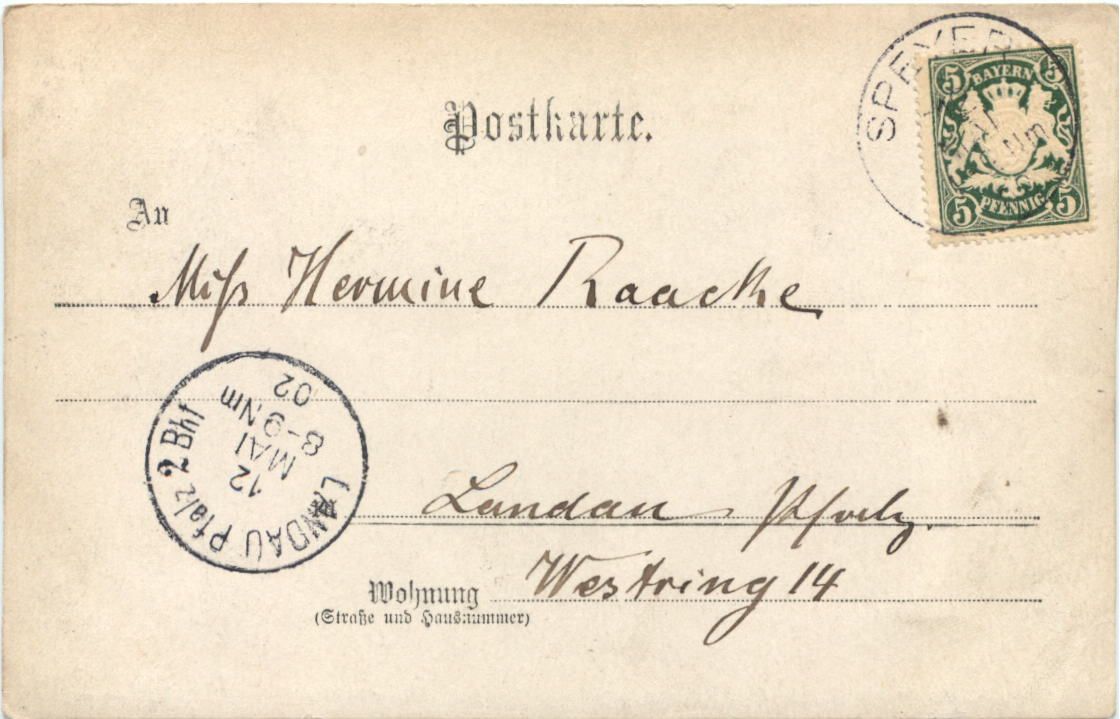 Postkarte.
SPEYER
5 5
BAYERN
PFENNIG
5 5
An
Miſs Hermine Raacke
LANDAU Pfalz 2 Bhf
12
MAI
8-9 Nm
02
Landau Pfalz.
Wohnung Westring 14
(Straße und Hausnummer)